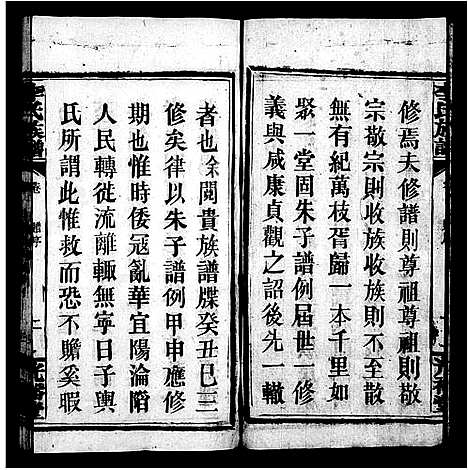 修焉夫修譜則尊祖尊祖則敬
宗敬宗則收族收族則不至散
無有紀萬枝胥歸一本千里如
聚一堂固朱子譜例屆世一修
義與咸康貞觀之詔後先一轍
者也余閱貴族譜牒癸丑巳三
修矣律以朱子譜例甲申應修
期也惟時倭寇亂華宜陽淪陷
人民轉徙流離輒無寧日子輿
氏所謂此惟救而恐不贍奚暇
李氏族譜
卷